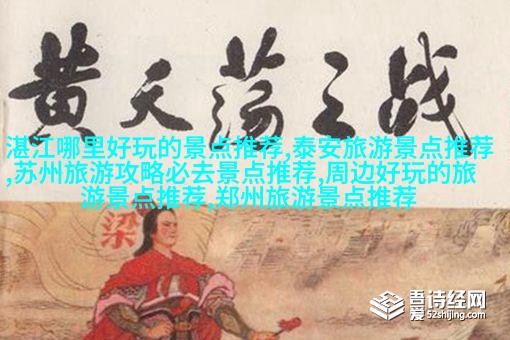 黄天荡之战
湛江哪里好玩的景点推荐,泰安旅游景点推荐
,苏州旅游攻略必去景点推荐,周边好玩的旅
游景点推荐,郑州旅游景点推荐
梁
吾诗经网
爱52shijing.com